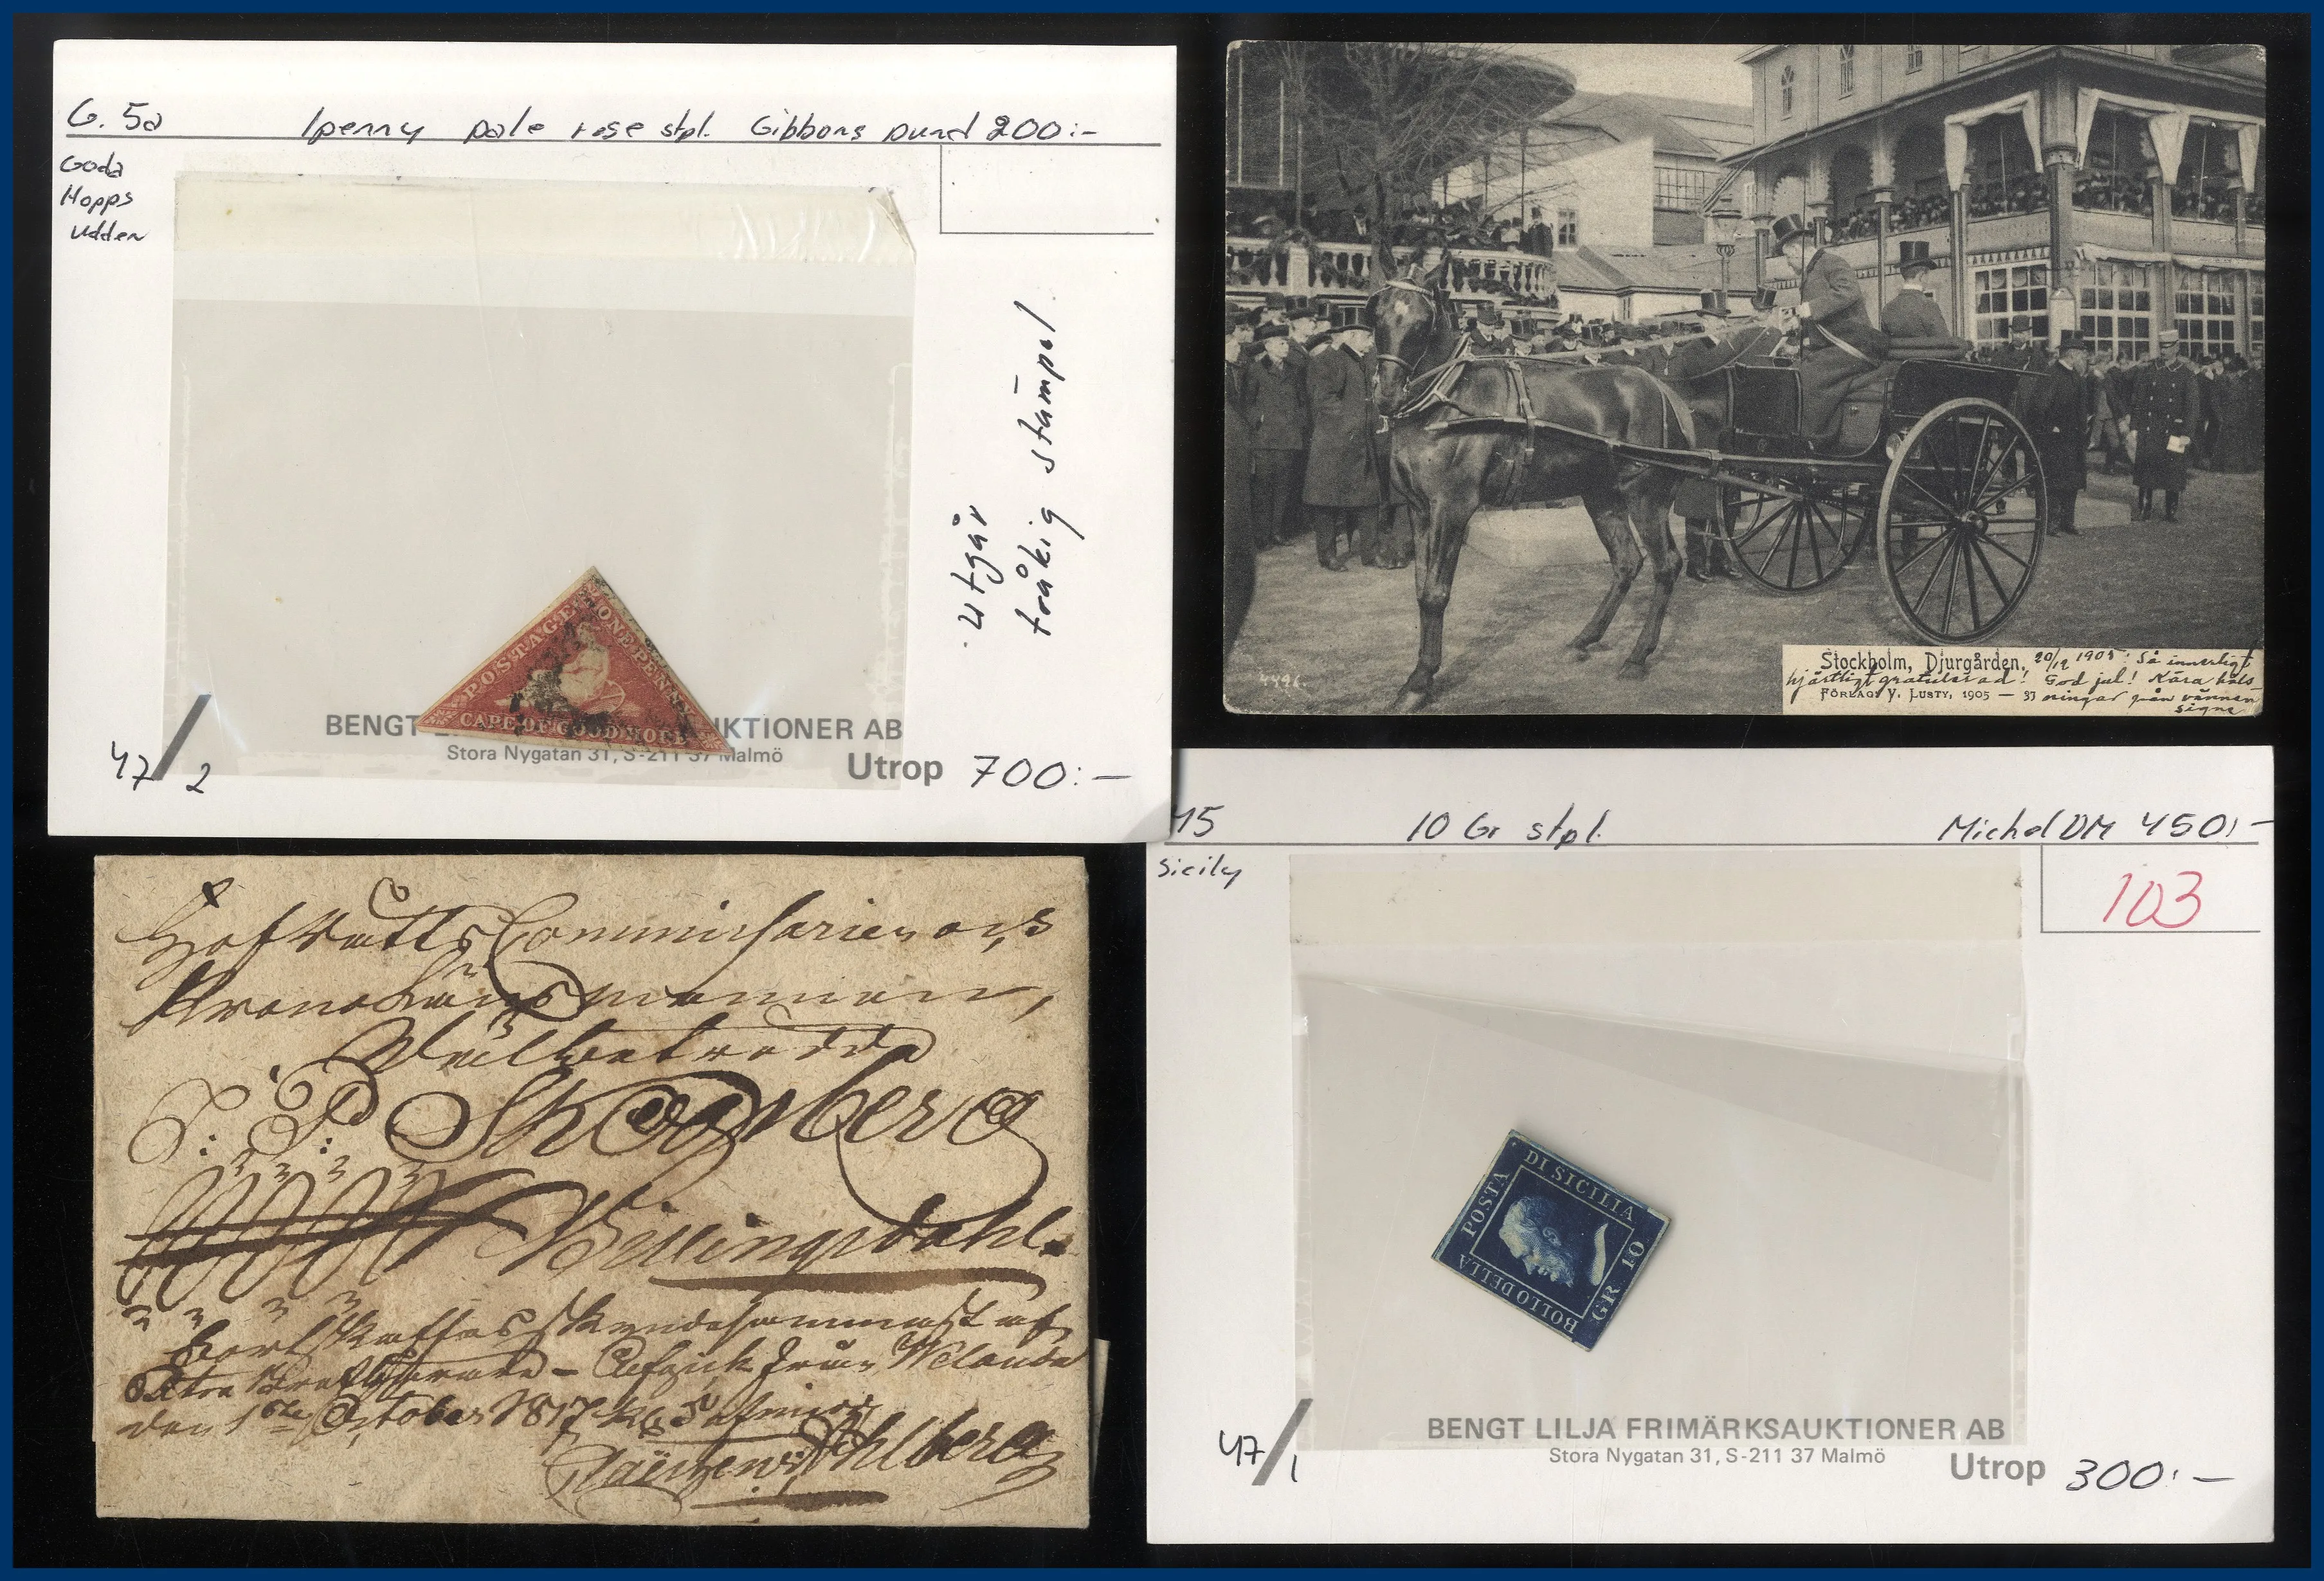 G. 5a 1penny pale rose stpl. Gibbons pund 200:-
Goda
Hopps
Udden
Utgår
tråkig stämpel
POSTAGE
ONE PENNY
CAPE OF GOOD HOPE
BENGT L KTIONER AB
Stora Nygatan 31, S-211 37 Malmö
47/2
Utrop 700:-
4496.
Stockholm, Djurgården. 20/12 1905. Så innerligt
hjärtligt gratulerad! God jul! Kära häls-
FÖRLAG: V. LUSTY, 1905 — 37 ningar från vännen
Signe
Hofrätts Commissarien och
Krono Länsmannen,
Wälbetrodde
S: P: Skogsberg
Billingsdahl.
den 1ste October 1817 kl 6
Ahlberg
15 10 Gr stpl. Michel DM 450:-
Sicily
103
POSTA
DI SICILIA
GR. 10
BOLLO DELLA
BENGT LILJA FRIMÄRKSAUKTIONER AB
Stora Nygatan 31, S-211 37 Malmö
47/1
Utrop 300:-